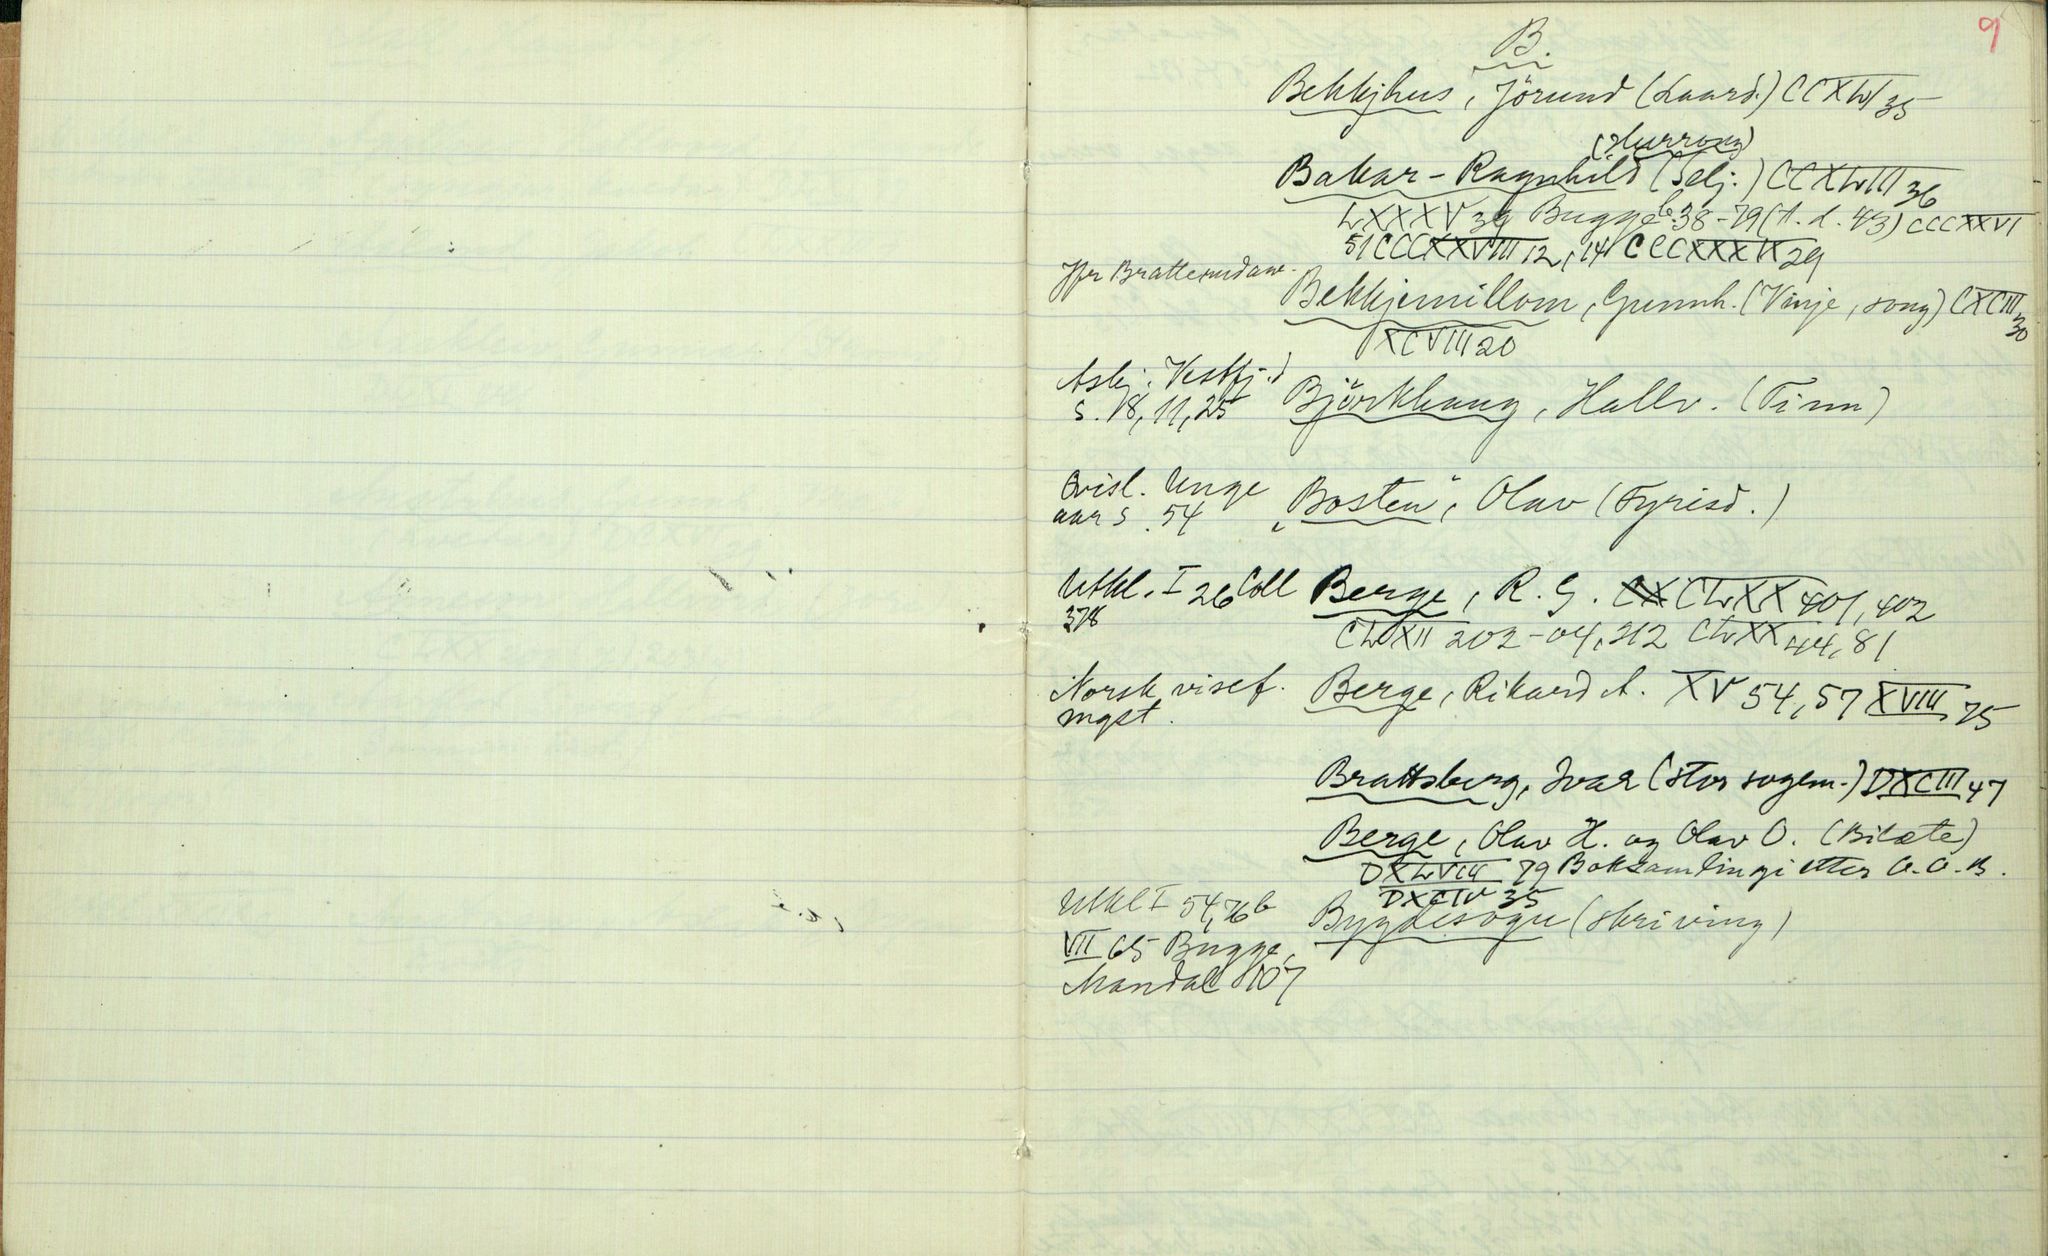 9
B.
Bekkjhus, Jörund (Laard.) CCXLVI 35
Bakar-Ragnhild (Selj.) CCXLVIII 36
LXXXV 39 Bugge b. 38-79 (A. d. 43) CCCXXVI
51 CCCXXVIII 12, 14 CCCXXXIX 29
Jfr Brattesudaw.
Bekkjemillom, Gunnh. (Vinje, song) CXCIII 30
XCVIII 20
Asbj. Vestfj.d
S. 18, 11, 25 Björkhaug, Hallv. (Tinn)
Unge
aar s. 54 "Bosten", Olav (Fyrisd.)
Utkl. I 26 Coll
378
Berge, R. G. CLXX 401, 402
CLXII 202-04, 212 CLXX 44, 81
Norsk visef.
mgst.
Berge, Rikard A. XV 54, 57 XVIII 75
Brattsberg, Ivar (stor sogem.) DXCIII 47
Berge, Olav H. og Olav O. (Bilæte)
DXLVIII 79 Boksamlingi etter O. O. B.
DXCIV 35
Utkl I 54, 76 b
VII 65 Bugge,
Mandal 107
Bygdesogu (skriving)